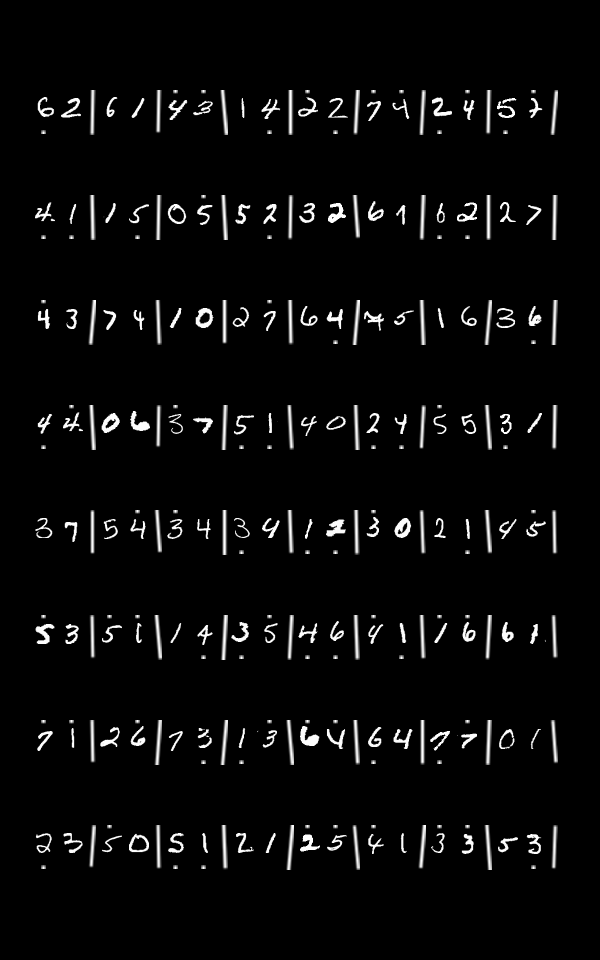 6 2 | 6 1 | 4 3 | 1 4 | 2 2 | 7 4 | 2 4 | 5 7 |
4 1 | 1 5 | 0 5 | 5 2 | 3 2 | 6 1 | 6 2 | 2 7 |
4 3 | 7 4 | 1 0 | 2 7 | 6 4 | 5 | 1 6 | 3 6 |
4 4 | 0 6 | 3 7 | 5 1 | 4 0 | 2 4 | 5 5 | 3 1 |
3 7 | 5 4 | 3 4 | 3 4 | 1 2 | 3 0 | 2 1 | 4 5 |
5 3 | 5 1 | 1 4 | 3 5 | 4 6 | 4 1 | 1 6 | 6 1 |
7 1 | 2 6 | 7 3 | 1 3 | 6 4 | 6 4 | 7 7 | 0 1 |
2 3 | 5 0 | 5 1 | 2 1 | 2 5 | 4 1 | 3 3 | 5 3 |